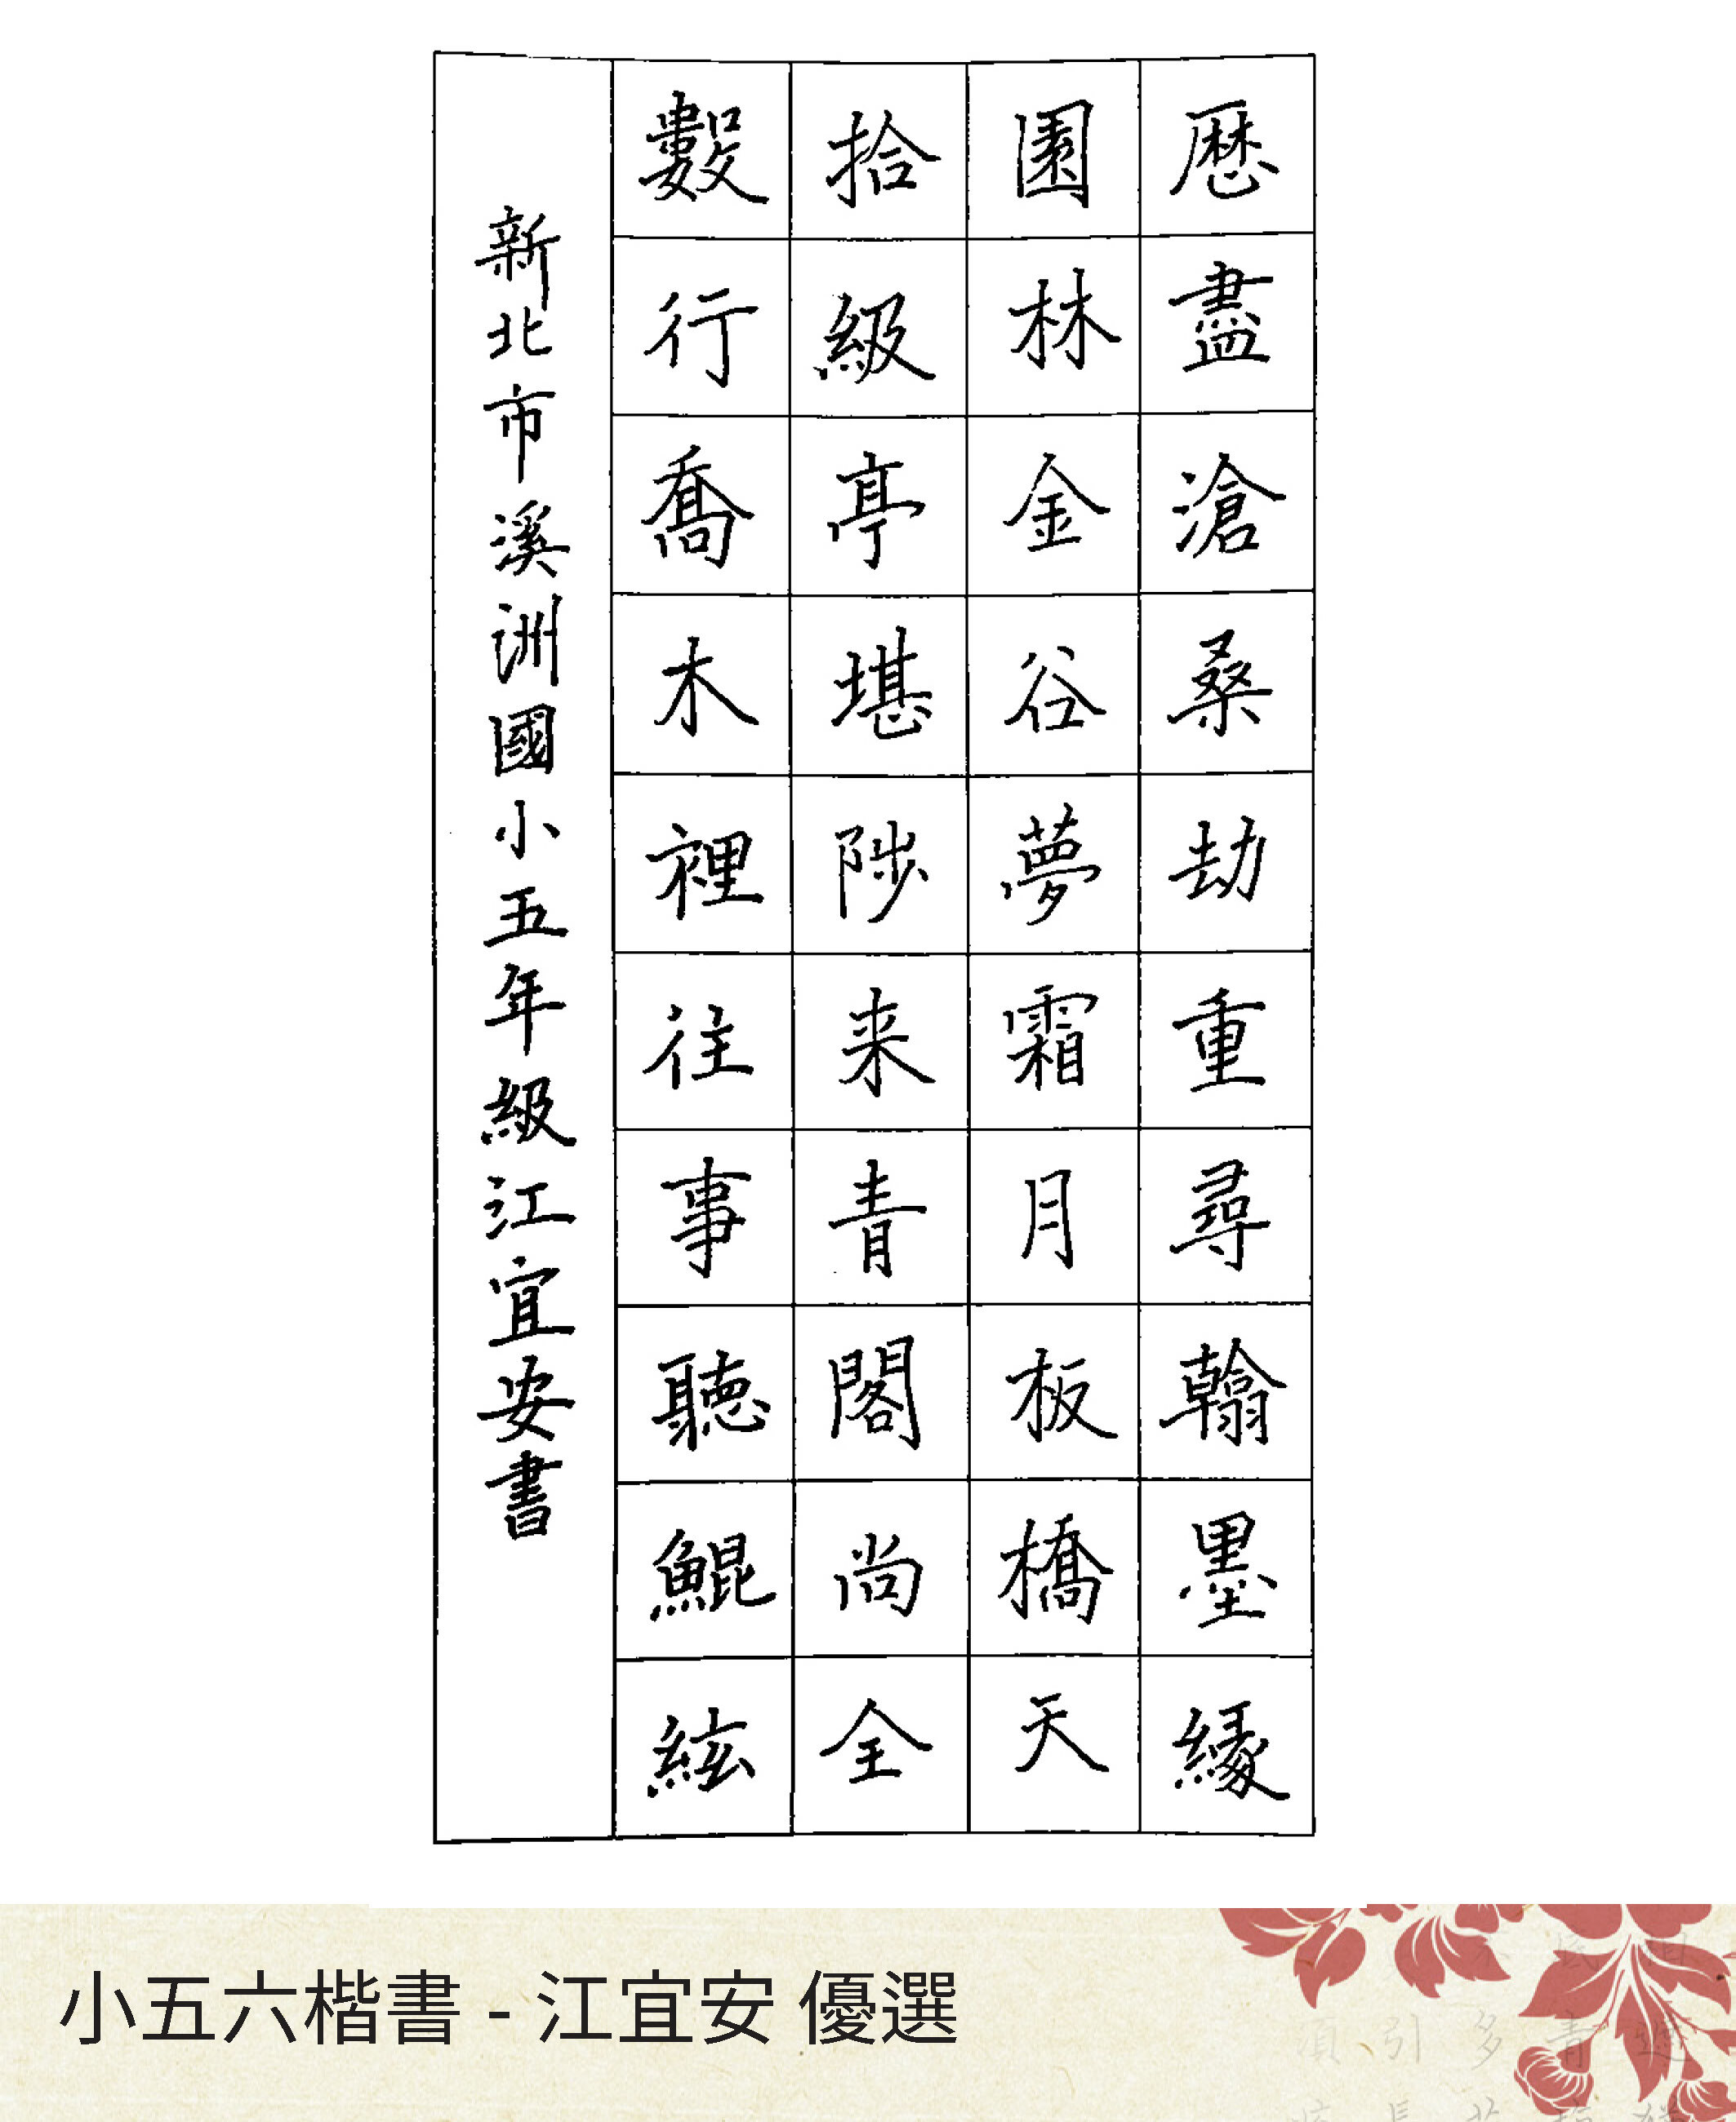 歷盡滄桑劫重尋翰墨緣
園林金谷夢霜月板橋天
拾級亭堪陟来青閣尚全
數行喬木裡往事聽鯤絃
新北市溪洲國小五年級江宜安書
小五六楷書 - 江宜安 優選